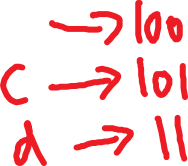 → 100
c → 101
d → 11